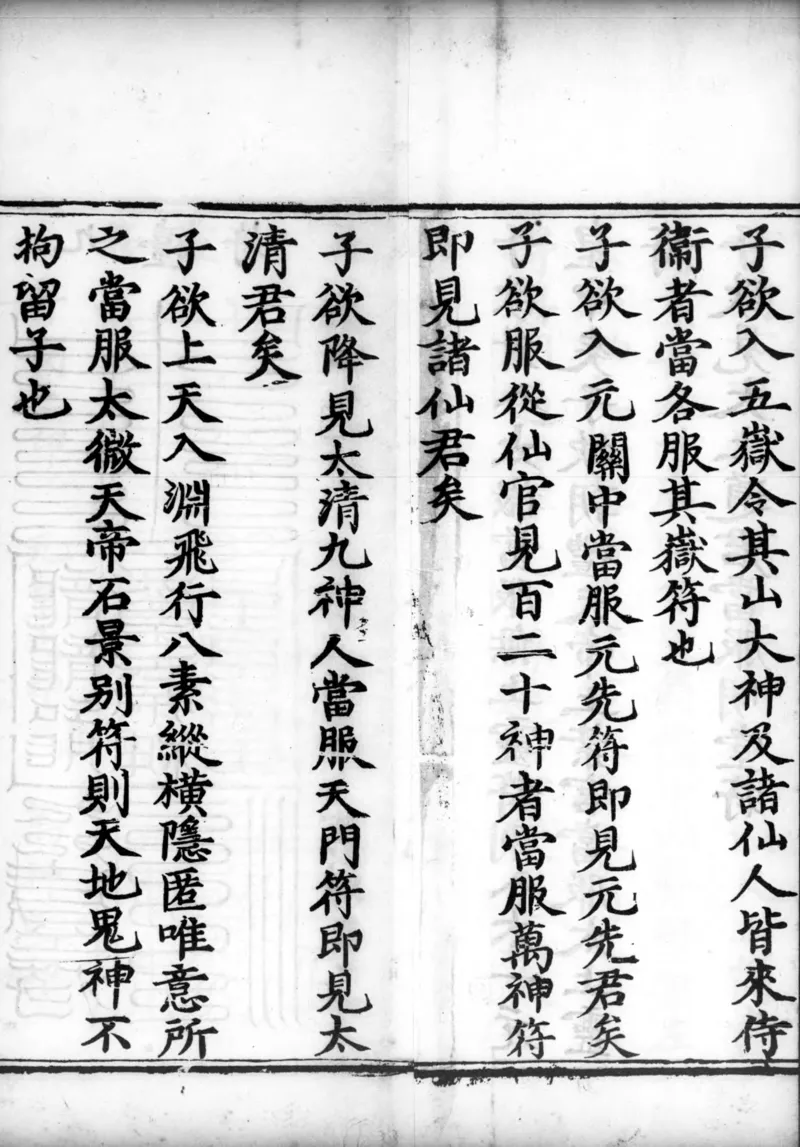 子欲入五嶽令其山大神及諸仙人皆來侍
衞者當各服其嶽符也
子欲入元關中當服元先符即見元先君矣
子欲服從仙官見百二十神者當服萬神符
即見諸仙君矣
子欲降見太清九神人當服天門符即見太
清君矣
子欲上天入淵飛行八素縱橫隱匿唯意所
之當服太微天帝石景别符則天地鬼神不
拘留子也